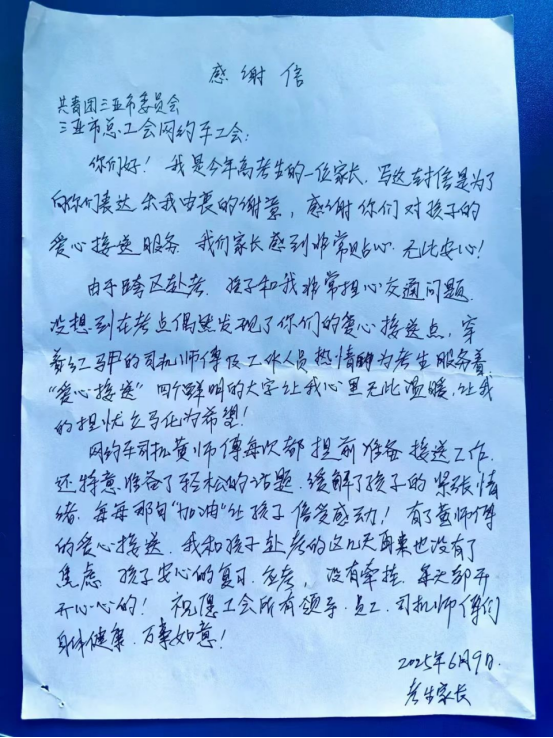 感谢信
共青团三亚市委员会
三亚市总工会网约车工会：
你们好！我是今年高考生的一位家长，写这封信是为了
向你们表达出我由衷的谢意，感谢你们对孩子的
爱心接送服务。我们家长感到非常贴心，无比安心！
由于跨区赴考，孩子和我非常担心交通问题，
没想到在考点偶然发现了你们的爱心接送点，穿
着红马甲的司机师傅及工作人员热情的为考生服务着，
“爱心接送”四个鲜明的大字让我心里无比温暖，让我
的担忧立马化为希望！
网约车司机黄师傅每次都提前准备接送工作，
还特意准备了轻松的话题，缓解了孩子的紧张情
绪，每每那句“加油”让孩子倍受感动！有了黄师傅
的爱心接送，我和孩子赴考的这几天再来也没有了
焦虑，孩子安心的复习、应考，没有牵挂，每天都开
开心心的！祝愿工会所有领导、员工、司机师傅们
身体健康，万事如意！
2025年6月9日.
考生家长